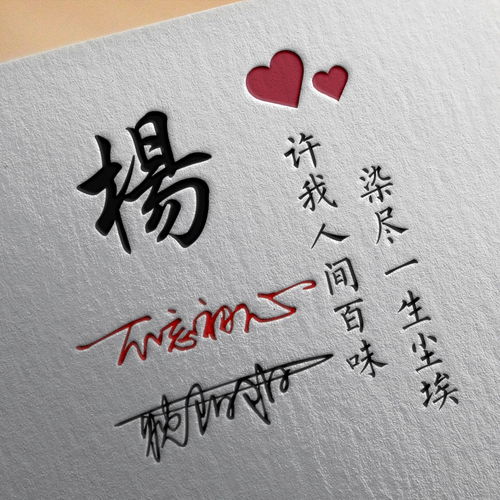 楊
染尽一生尘埃
许我人间百味
不忘初心